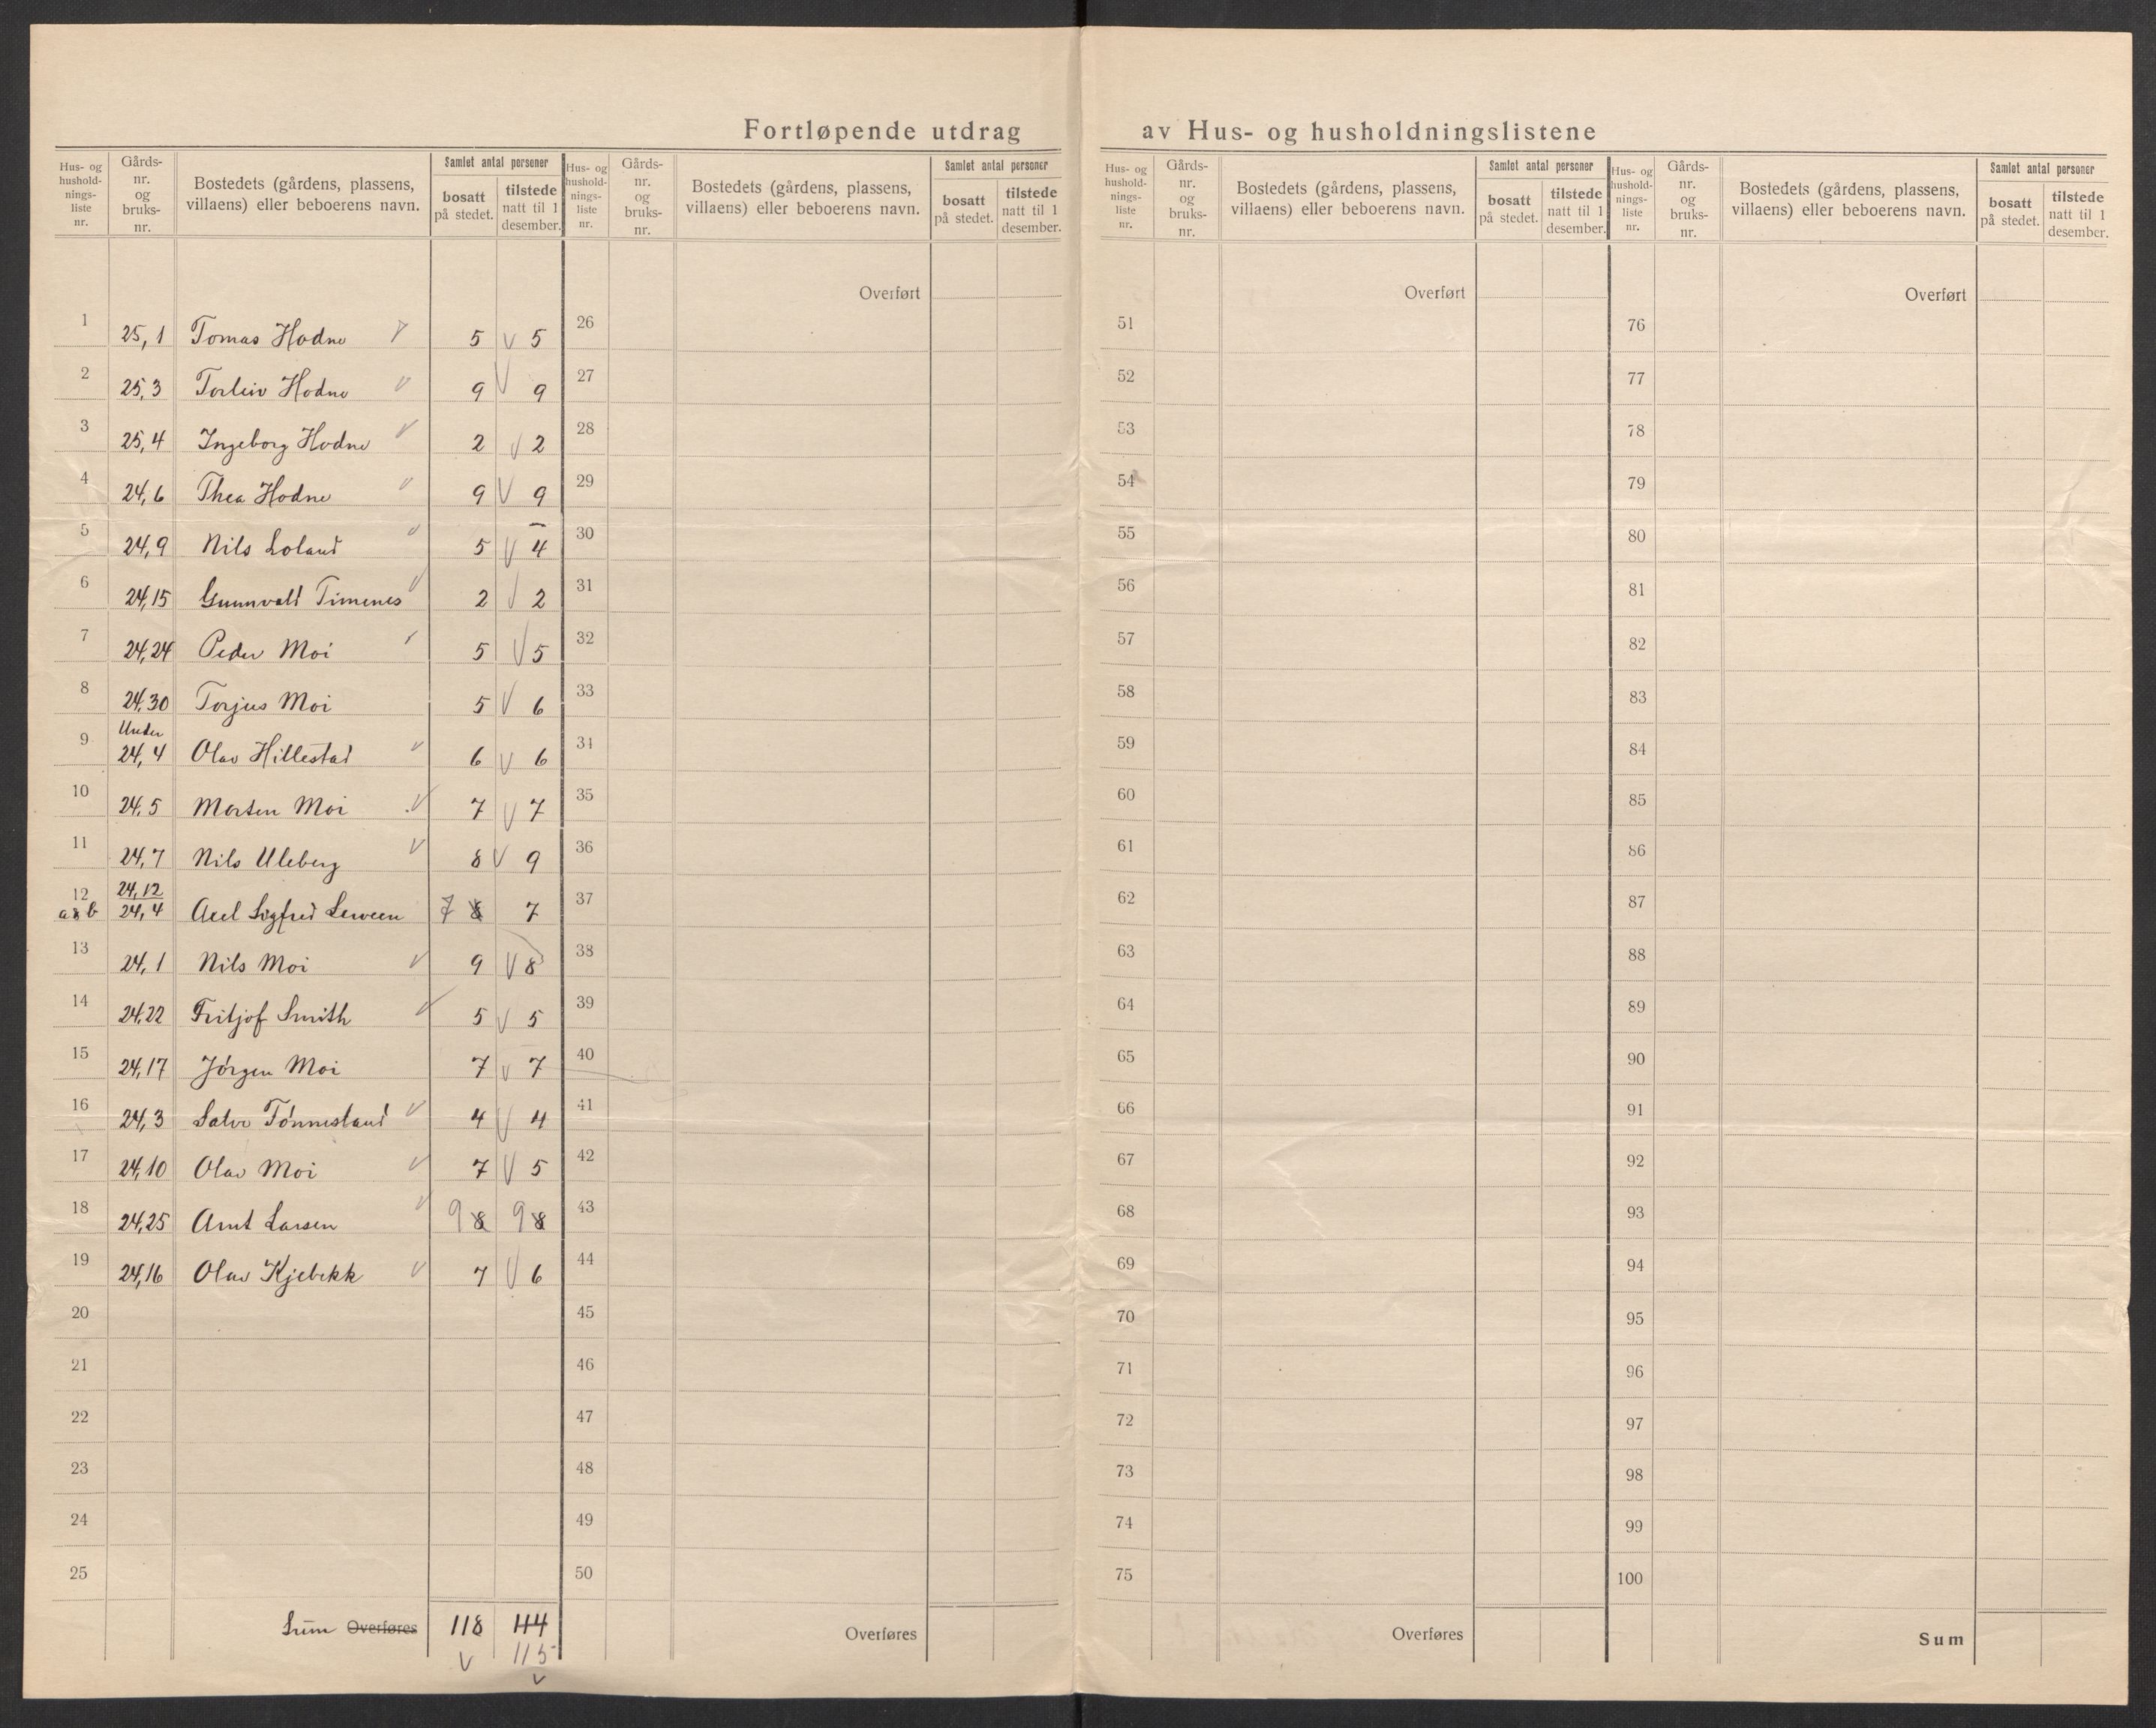 Fortløpende utdrag av Hus- og husholdningslistene
Hus- og hushold-nings-liste nr. Gårds-nr. og bruks-nr. Bostedets (gårdens, plassens, villaens) eller beboerens navn. Samlet antal personer bosatt på stedet. tilstede natt til 1 desember.
Hus- og hushold-nings-liste nr. Gårds-nr. og bruks-nr. Bostedets (gårdens, plassens, villaens) eller beboerens navn. Samlet antal personer bosatt på stedet. tilstede natt til 1 desember.
Hus- og hushold-nings-liste nr. Gårds-nr. og bruks-nr. Bostedets (gårdens, plassens, villaens) eller beboerens navn. Samlet antal personer bosatt på stedet. tilstede natt til 1 desember.
Hus- og hushold-nings-liste nr. Gårds-nr. og bruks-nr. Bostedets (gårdens, plassens, villaens) eller beboerens navn. Samlet antal personer bosatt på stedet. tilstede natt til 1 desember.
Overført Overført Overført
1 25,1 Tomas Hodne 5 5 26 51 76
2 25,3 Torleiv Hodne 9 9 27 52 77
3 25,4 Ingeborg Hodne 2 2 28 53 78
4 24,6 Thea Hodne 9 9 29 54 79
5 24,9 Nils Loland 5 4 30 55 80
6 24,15 Gunnvald Timenes 2 2 31 56 81
7 24,24 Peder Moi 5 5 32 57 82
8 24,30 Torjus Moi 5 6 33 58 83
9 Under 24,4 Olav Hillestad 6 6 34 59 84
10 24,5 Morten Moi 7 7 35 60 85
11 24,7 Nils Uleberg 8 9 36 61 86
12 a & b 24,12 24,4 Axel Sigfred 7 8 7 37 62 87
13 24,1 Nils Moi 9 8 38 63 88
14 24,22 Fritjof Smith 5 5 39 64 89
15 24,17 Jörgen Moi 7 7 40 65 90
16 24,3 Salve Tönnesland 4 4 41 66 91
17 24,10 Olav Moi 7 5 42 67 92
18 24,25 Arnt Larsen 9 8 9 8 43 68 93
19 24,16 Olav Kjebekk 7 6 44 69 94
20 45 70 95
21 46 71 96
22 47 72 97
23 48 73 98
24 49 74 99
25 50 75 100
Sum Overføres 118 114 Overføres Overføres Sum
115